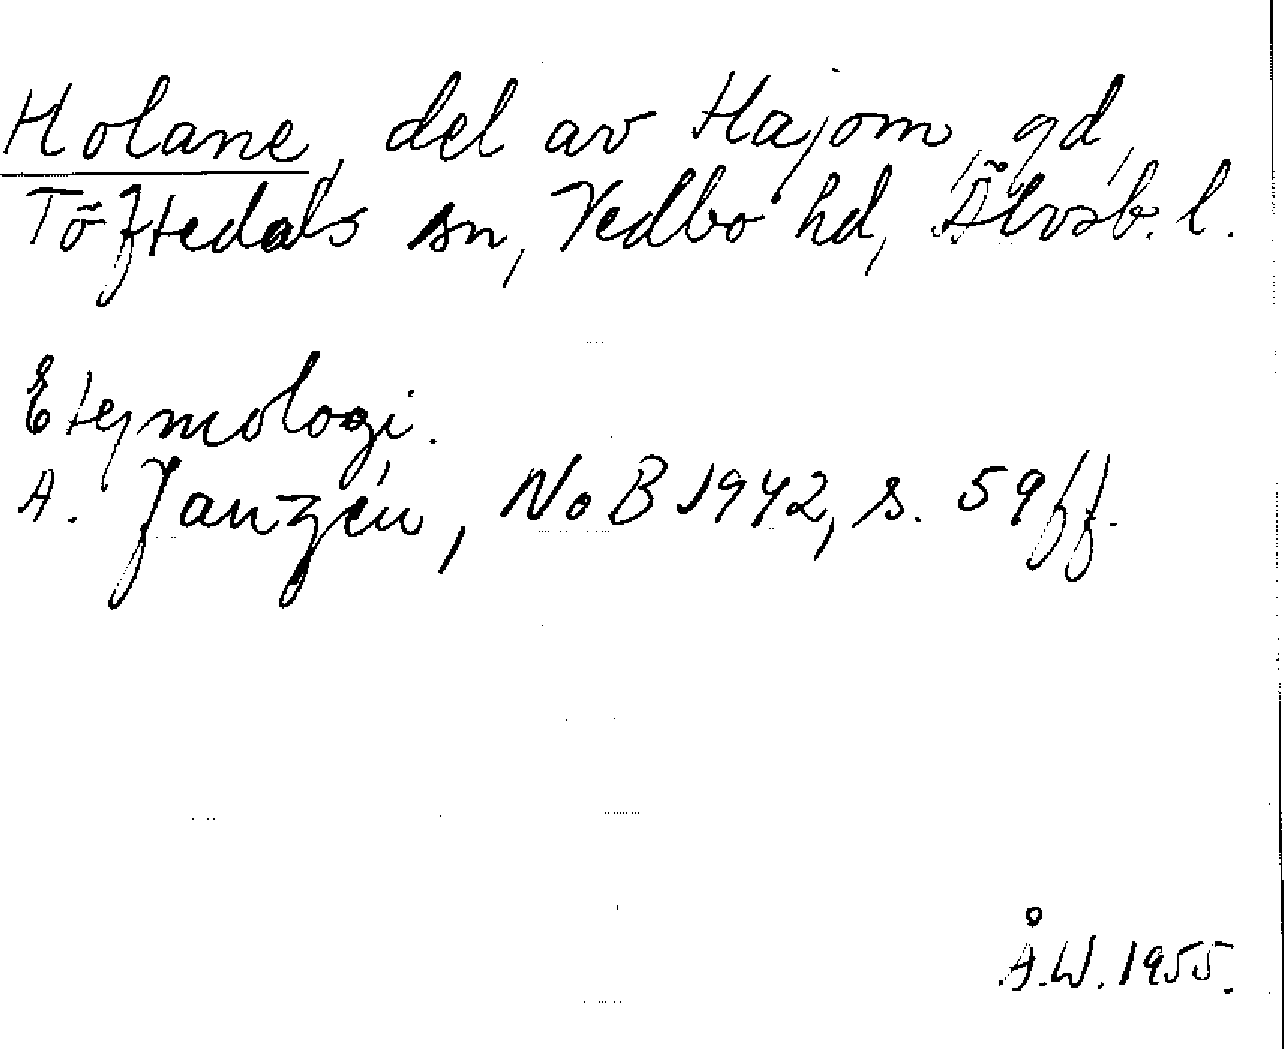 Holane, del av Hajom, gd,
Töftedals sn, Vedbo hd, Älvsb. l.
Etymologi.
A. Janzén, NoB 1942, s. 59 ff.
Å.W. 1955.